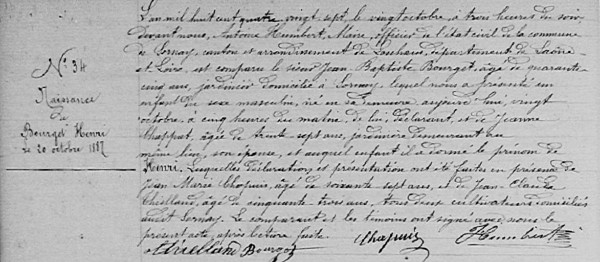 N° 34
Naissance
de
Bourgot Henri
le 20 octobre 1887
L'an mil huit cent quatre vingt sept, le vingt octobre, à trois heures du soir
devant nous, Antoine Humbert, Maire, officier de l'état civil de la commune
de Sornay, canton et arrondissement de Louhans, département de Saône
et Loire, est comparu le sieur Jean Baptiste Bourgot, âgé de quarante
cinq ans, jardinier domicilié à Sornay, lequel nous a présenté un
enfant du sexe masculin, né en sa demeure aujourd'hui, vingt
octobre, à cinq heures du matin, de lui, déclarant, et de Jeanne
âgée de trente sept ans, jardinière demeurant au
même lieu, son épouse, et auquel enfant il a donné le prénom de
Henri. Lesquelles déclaration et présentation ont été faites en présence de
Jean Marie Chapuis, âgé de soixante sept ans, et de Jean Claude
âgé de cinquante trois ans, tous deux cultivateurs domiciliés
audit Sornay. Le comparant et les témoins ont signé avec nous le
présent acte, après lecture faite.
Bourgot Chapuis Humbert